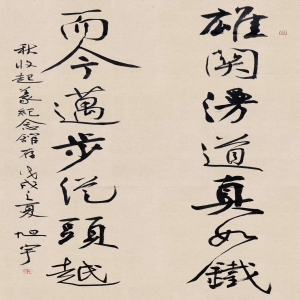 雄関漫道真如鐵
而今邁步從頭越
秋收起義紀念館存 戊戌之夏 旭宇